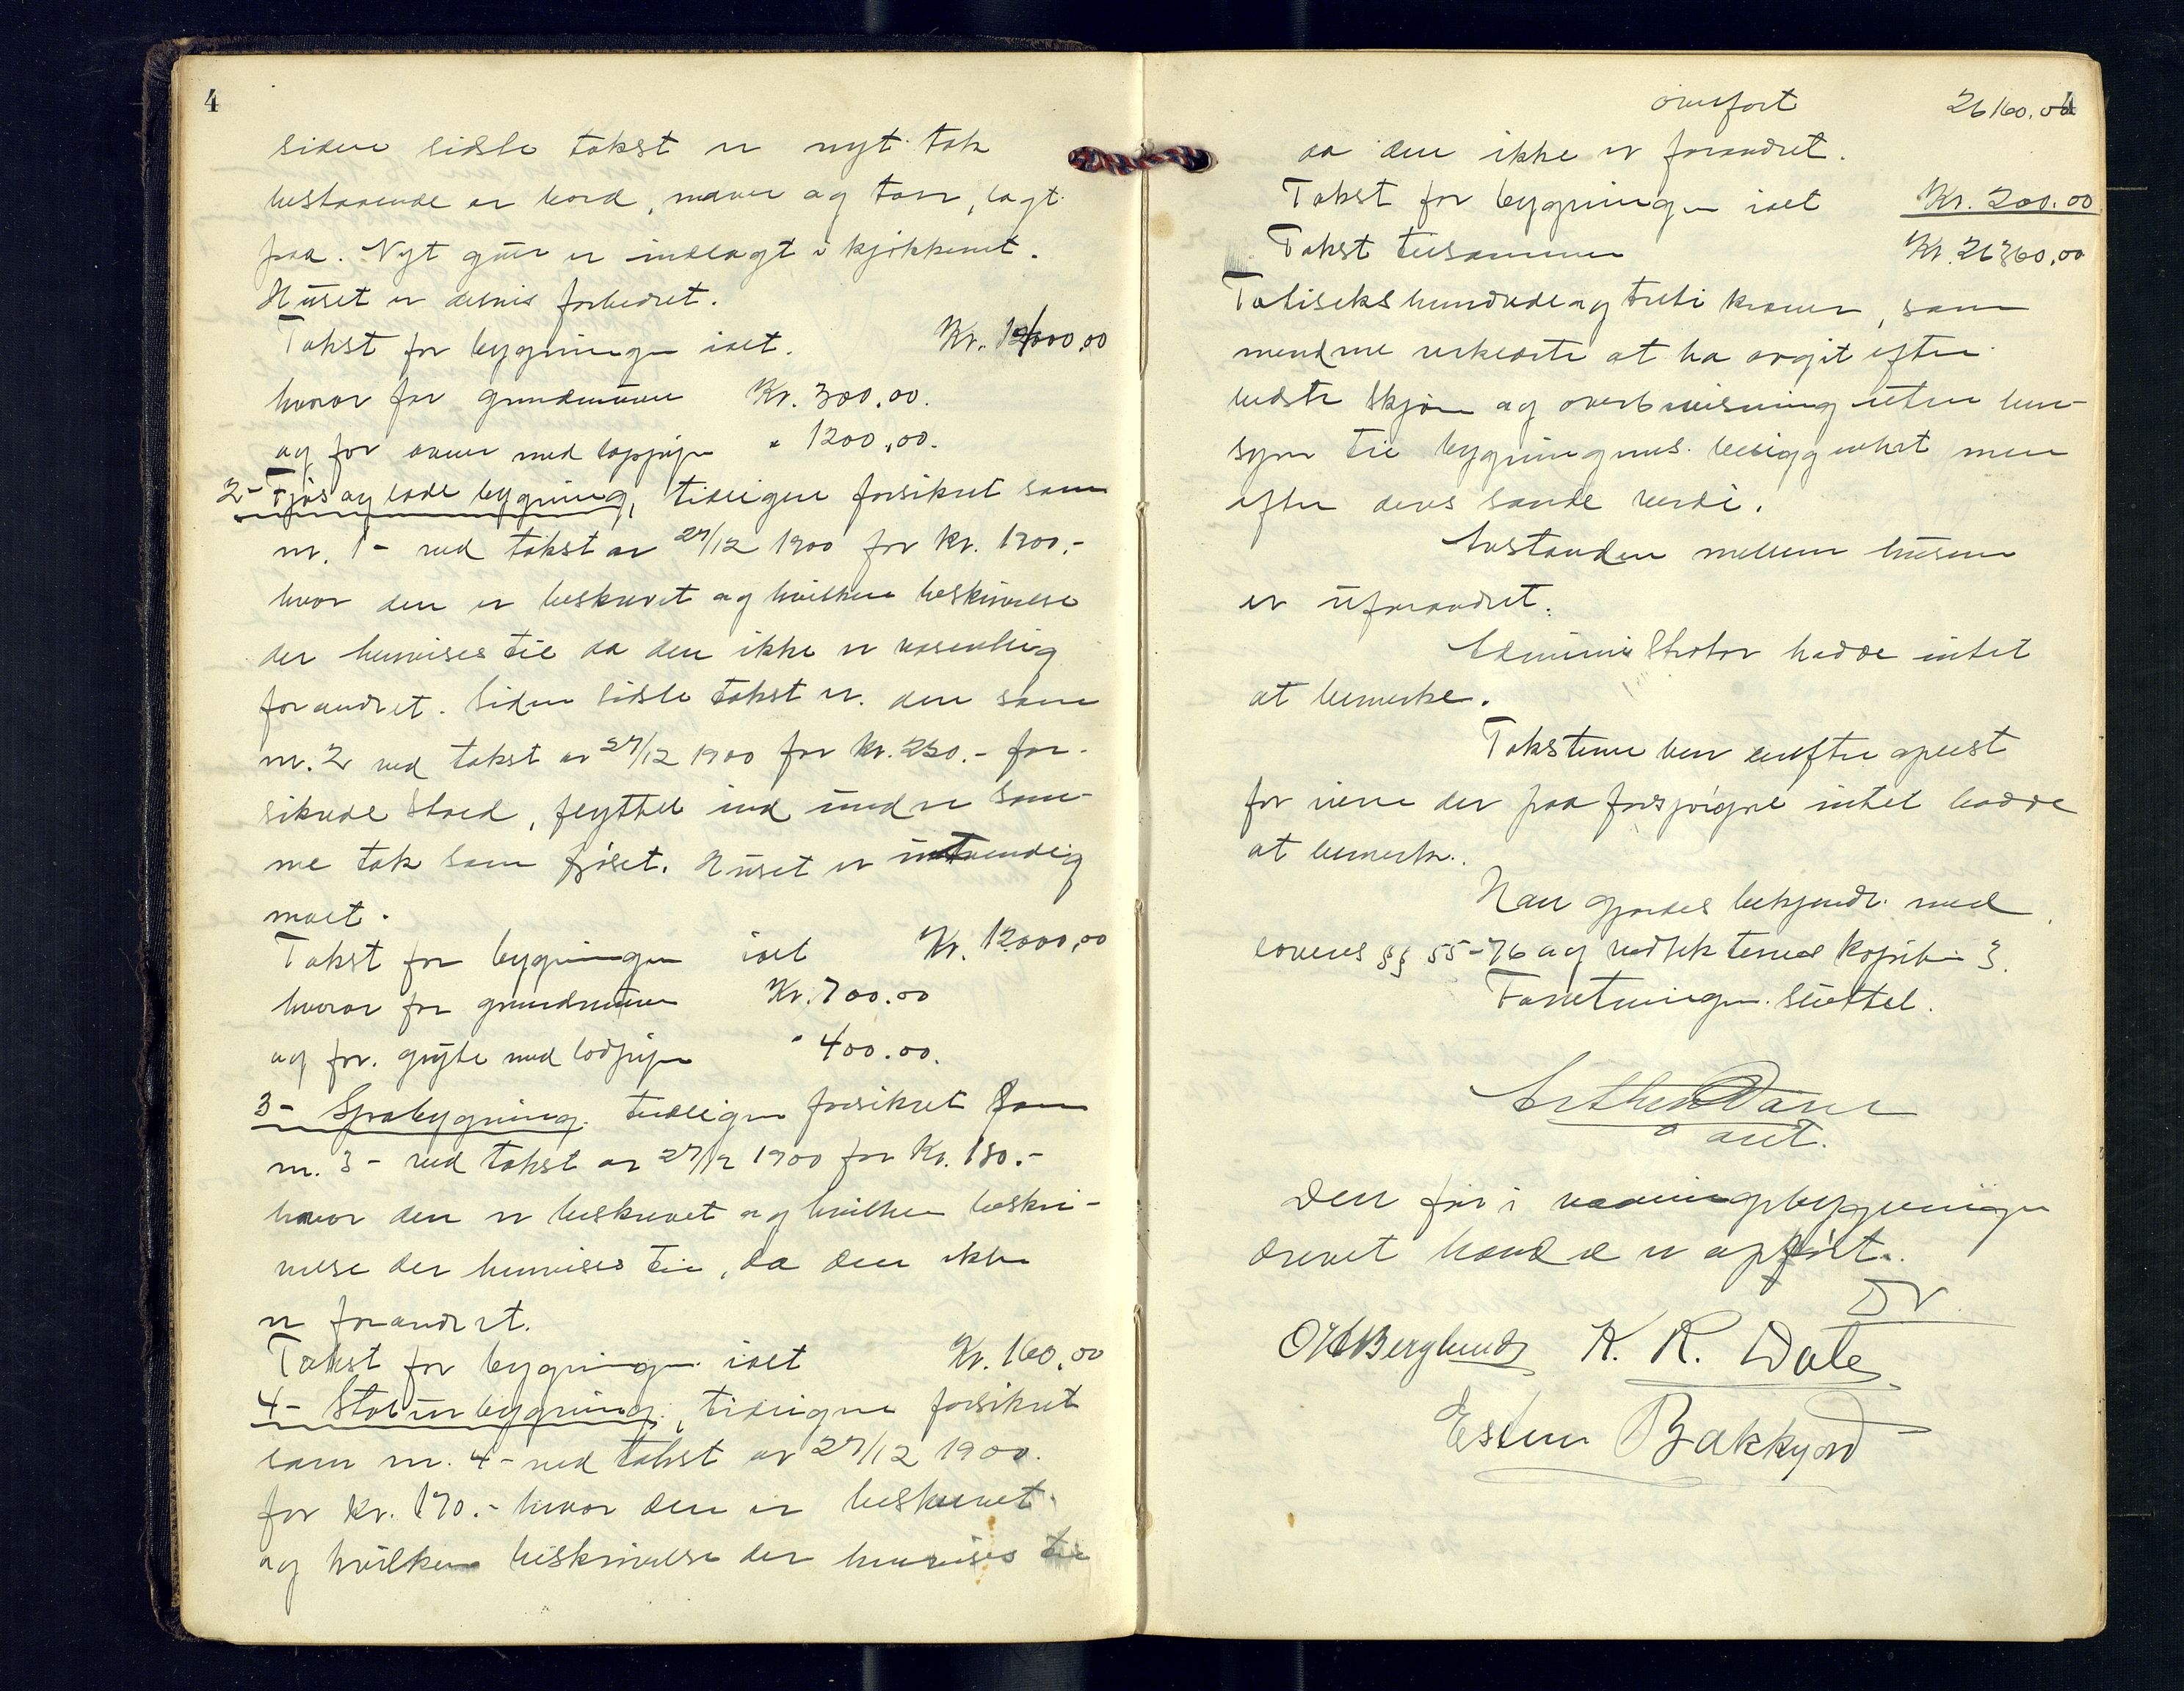 4
siden sidste takst er nyt tak
bestaaende av bord, næver og torv, lagt
paa. Nyt gulv er indlagt i kjøkkenet.
Huset er delvis forbedret.
Takst for bygningen ialt. Kr. 14000,00
hvorav for grundmuren Kr. 300,00.
og for ovner med 1200,00.
2- Fjøs og lade bygning, tidligere forsikret som
nr. 1- ved takst av 27/12 1900 for kr. 1900.-
hvor den er beskrevet og hvilken beskrivelse
der henvises til da den ikke er væsentlig
forandret. Siden sidste takst er den som
nr. 2 ved takst av 27/12 1900 for kr. 250.- for-
sikrede stald, flyttet ind under sam-
me tak som fjøset. Huset er utvendig
malt.
Takst for bygningen ialt Kr. 12000,00
hvorav for grundmuren Kr. 700.00
og for gryte med 400.00.
3- bygning. tidligere forsikret som
nr. 3- ved takst av 27/12 1900 for Kr. 180.-
hvor den er beskrevet og hvilken beskri-
velse der henvises til, da den ikke
er forandret.
Takst for bygningen ialt Kr. 160,00
4- Stabursbygning, tidligere forsikret
som nr. 4- ved takst av 27/12 1900.
for kr. 170.- hvor den er beskrevet
og hvilken beskrivelse der henvises til
overført 26160,00
4
da den ikke er forandret.
Takst for bygningen ialt Kr. 200.00
Takst tilsammen Kr. 26360,00
hundrede og kroner, som
mendene erklærte at ha avgit efter
bedste skjøn og overbevisning uten hen-
syn til bygningenes beliggenhet men
efter deres sande verdi.
Avstanden mellem husene
er uforandret.
Administrator hadde intet
at bemerke.
Takstene blev derefter oplæst
for eieren der paa forespørgsel intet hadde
at bemerke.
Han gjordes bekjendt med
lovens §§ 55-76 og vedtekternes kapitel 3.
Forretningen sluttet.
Arthur
Den før i vaaningsbygningen
drevet handel er ophørt.
Berglund K. R. Dale
Esten Bakkjord